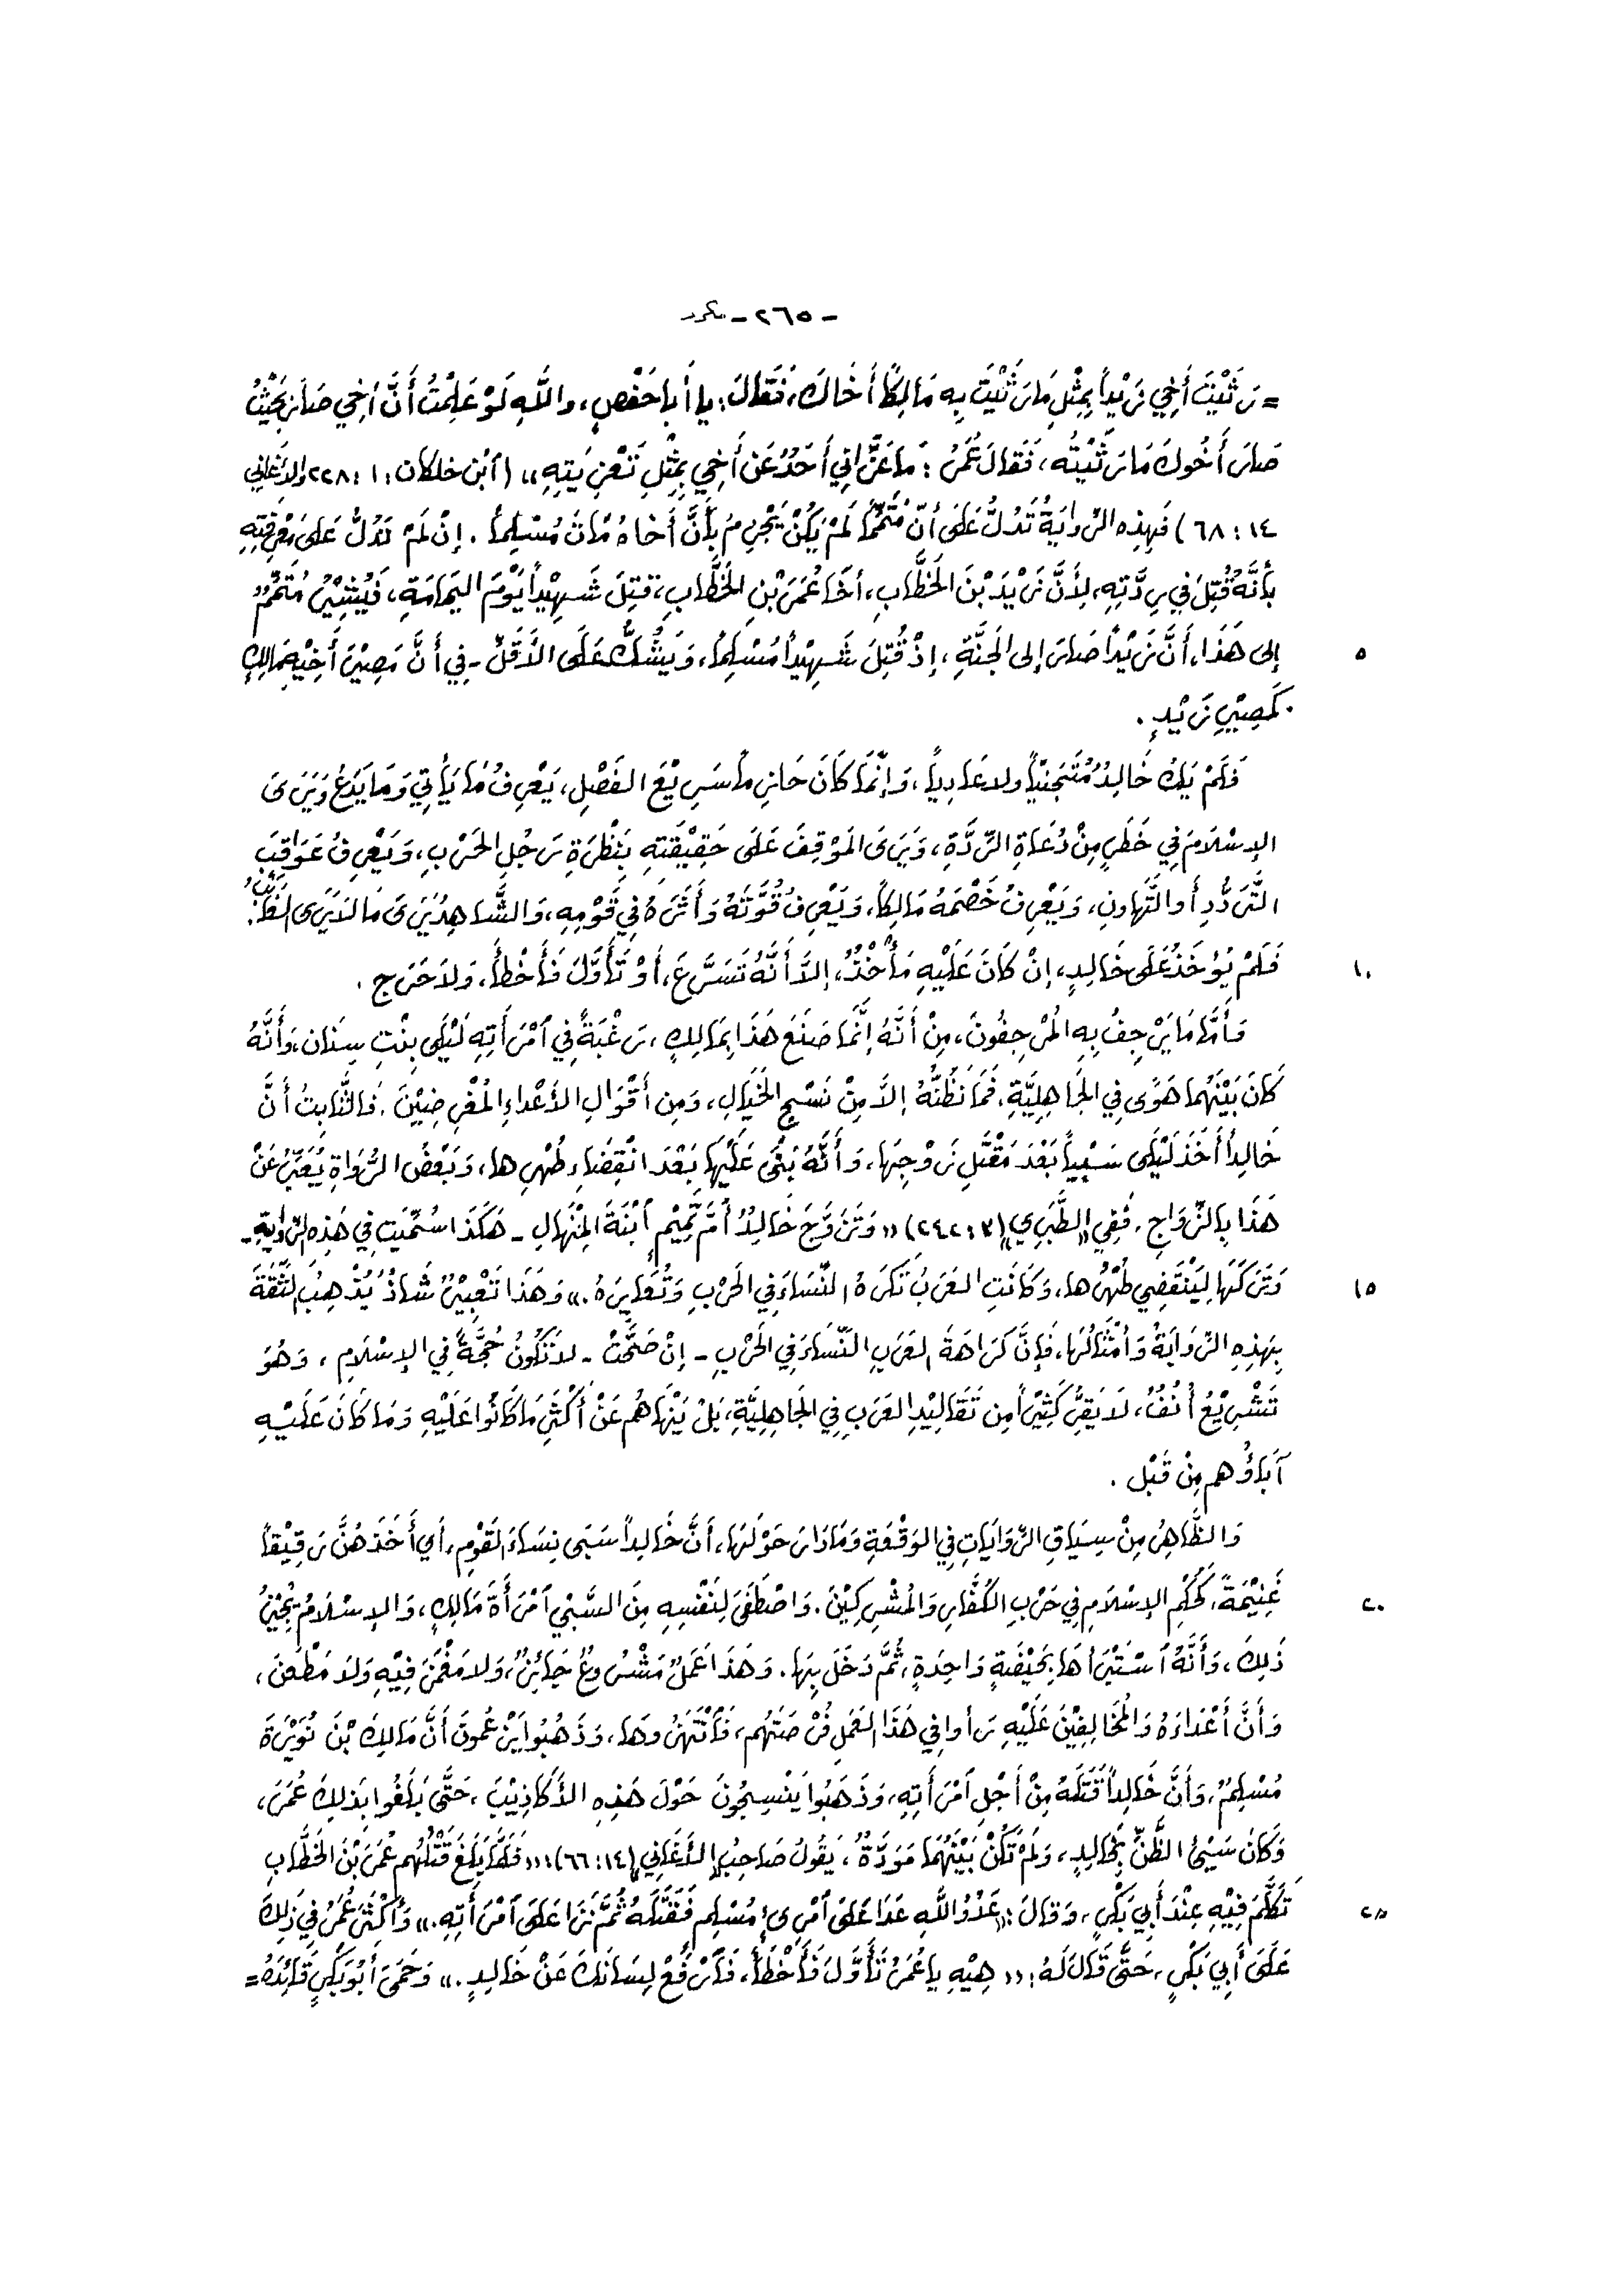 - ٢٦٥ - مكرر
= رَثَيْتَ أَخِي زَيْداً بِمِثْلِ مَا رَثَيْتَ بِهِ مَالِكًا أَخَاكَ، فَقَالَ: يا أَبا حَفْصٍ، واللَّهِ لَوْ عَلِمْتُ أَنَّ أَخِي صَارَ بِحَيْثُ
صَارَ أَخُوكَ مَا رَثَيْتُه، فَقَالَ عُمَرُ: مَا عَزَّانِي أَحَدٌ عَن أَخِي بِمِثْلِ تَعْزِيَتِهِ» (ابْن خلكان: ١: ٢٢٨ والأَغاني
١٤: ٦٨) فَهذِه الرِّوايَةُ تَدُلُّ عَلَى أَنّ مُتَمِّمًا لَمْ يَكُنْ يَجْزِمُ بِأَنَّ أَخاهُ مَاتَ مُسْلِماً. إِنْ لَمْ تَدُلُّ عَلَى مَعْرِفَتِهِ
بأَنَّهُ قُتِلَ فِي رِدَّتِهِ، لِأَنَّ زَيْدَ بْنَ الخَطَّابِ، أَخَا عُمَرَ بْنِ الخَطَّابِ، قتِلَ شَهِيْداً يَوْمَ اليَمَامَةِ، فَيُشِيْرُ مُتَمِّمٌ
إلى هَذَا، أَنَّ زَيْداً صَارَ إلى الجَنَّةِ، إِذْ قُتِلَ شَهِيْداً مُسْلِماً، وَيَشُكُّ عَلَى الأَقَلِّ - فِي أَنَّ مَصِيْرَ أَخِيْهِ مَالِكٍ ٥
كَمَصِيْرِ زَيْدٍ.
فَلَمْ يَكُ خَالِدٌ مُتَجَنِّياً ولا عَادِياً، وَإِنَّمَا كَانَ حَازِماً سَرِيْعَ الفَصْلِ، يَعْرِفُ مَا يَأْتِي وَمَا يَدَعُ وَيَرَى
الإِسْلَامَ فِي خَطَرٍ مِنْ دُعَاةِ الرِّدَّةِ، وَيَرَى المَوْقِفَ عَلَى حَقِيْقَتِهِ بِنْظَرَةِ رَجُلِ الحَرْبِ، وَيَعْرِفُ عَوَاقِبَ
التَّرَدُّدِ أَوالتَّهاونِ، وَيَعْرِفُ خَصْمَهُ مَالِكاً، وَيَعْرِفُ قُوَّتَهُ وَأَثَرَهُ فِي قَوْمِهِ، وَالشَّاهِدُ يَرَى مَا لَا يَرَى الغَائِبُ.
فَلَمْ يُؤخَذْ عَلَى خَالِدٍ، إِنْ كَانَ عَلَيْهِ مَأْخَذٌ، إِلاَّ أَنَّهُ تَسَرَّعَ، أَوْ تَأَوَّلَ فَأَخْطَأَ، وَلاَ حَرَج. ١٠
وَأَمَّا مَا يَرْجِفُ بِهِ المُرْجِفُونَ، مِنْ أَنَّهُ إِنَّمَا صَنَعَ هَذَا بِمَالِكٍ، رَغْبَةً فِي آمْرَأَتِهِ لَيْلَى بِنْتِ سِنَان، وَأَنَّهُ
كَانَ بَيْنَهُمَا هَوًى فِي الجَاهِلِيَّةِ. فَمَا نَظُنُّهُ إلاَّ مِنْ نَسْجِ الخَيَالِ، وَمِن أَقْوَالِ الأَعْدَاءِ المُغْرِضِيْنَ. فَالثَّابِتُ أَنَّ
خَالِداً أَخَذَ لَيْلَى سَبْياً بَعْدَ مَقْتَلِ زَوْجِهَا، وَأَنَّهُ بَنَى عَلَيْهَا بَعْدَ انْقِضَاءِ طُهْرِها، وَبَعْضُ الرُّوَاةِ يُعَبِّرُ عَنْ
هَذَا بِالزَّوَاجِ. فَفِي «الطَّبَرِي» (٣: ٢٤٢) «وَتَزَوَّجَ خَالِدٌ أُمَّ تَمِيْمٍ آبْنَةَ المِنْهَالِ - هَكَذَا سُمِّيَت فِي هَذِهِ الرِّوَايَةِ -
وَتَرَكَهَا لِيَنْقَضِي طُهْرُها، وَكَانَتِ العَرَبُ تَكْرَهُ النِّسَاءَ فِي الحَرْبِ وَتُعَايِرُهُ.» وَهَذَا تَعْبِيْرٌ شَاذٌّ يُذْهِبُ الثِّقَةَ ١٥
بِهَذِهِ الرِّوَايَةِ وَأَمْثَالُهَا، فَإِنَّ كَرَاهَةَ العَرَبِ النِّسَاءَ فِي الحَرْبِ - إِنْ صَحَّتْ - لاَتَكُونُ حُجَّةً فِي الإِسْلَامِ، وَهُوَ
تَشْرِيْعٌ أُنُفٌ، لَا يَقِرُّ كَثِيْراً مِن تَقَالِيْدِ العَرَبِ فِي الجَاهِلِيَّةِ، بَلْ يَنْهَاهُم عَنْ أَكْثَرِ مَا كَانُوا عَلَيْهِ وَمَا كَانَ عَلَيْهِ
آبَاؤُهم مِنْ قَبْل.
وَالظَّاهِرُ مِنْ سِيَاقِ الرِّوَايَاتِ فِي الوَقْعَةِ وَمَا دَارَ حَوْلَهَا، أَنَّ خَالِداً سَبَى نِسَاءَ القَوْمِ، أَي أَخَذَهُنَّ رَقِيْقاً
غَنِيْمَةً، كَحُكْمِ الإِسْلَامِ فِي حَرْبِ الكُفَّارِ وَالمُشْرِكِيْنَ. وَاصْطَفَى لِنَفْسِهِ مِنَ السَّبْيِ آمْرَأَةَ مَالِكٍ، وَالإِسْلَامُ يُجِيْزُ ٢٠
ذَلِكَ، وَأَنَّهُ آسْتَبْرَأَهَا بِحَيْضَةٍ وَاحِدَةٍ، ثُمَّ دَخَلَ بِهَا. وَهَذَا عَمَلٌ مَشْرُوعٌ جَائِزٌ، وَلا مَغْمَزَ فِيْهِ وَلاَ مَطْعَنَ،
وَأَنَّ أَعْدَاءَهُ وَالمُخَالِفِيْنَ عَلَيْهِ رَأَوا فِي هَذَا العَمَلِ فُرْصَتَهُم، فَآنْتَهَزُوهَا، وَذَهَبُوا يَزْعُمُونَ أَنَّ مَالِكَ بْنَ نُوَيْرَةَ
مُسْلِمٌ، وَأَنَّ خَالِداً قَتَلَهُ مِنْ أَجْلِ آمْرَأَتِهِ، وَذَهَبُوا يَنْسِجُونَ حَوْلَ هَذِهِ الأَكَاذِيْبَ، حَتَّى بَلَغُوا بِذَلِكَ عُمَرَ،
وَكَانَ سَيِّئَ الظَّنِّ بِخَالِدٍ، وَلَمْ تَكُنْ بَيْنَهُمَا مَوَدَّةٌ، يَقُولُ صَاحِبُ «الأَغَانِي» (١٤: ٦٦): «فَلَمَّا بَلَغَ قَتْلُهُم عُمَرَ بْنَ الخَطَّابِ
تَكَلَّمَ فِيْهِ عِنْدَ أَبِي بَكْرٍ، وَقَالَ: عَدُوُّ اللَّهِ عَدَا عَلَى آمْرِئٍ مُسْلِمٍ فَقَتَلَهُ ثُمَّ نَزَا عَلَى آمْرَأَتِهِ.» وَأَكْثَرَ عُمَرُ فِي ذَلِكَ ٢٥
عَلَى أَبِي بَكْرٍ، حَتَّى قَالَ لَهُ: «هِيْهِ يا عُمَرُ تَأَوَّلَ فَأَخْطَأَ، فَآرْفَعْ لِسَانَكَ عَنْ خَالِدٍ.» وَحَمَى أَبُو بَكْرٍ قَائِدَهُ =